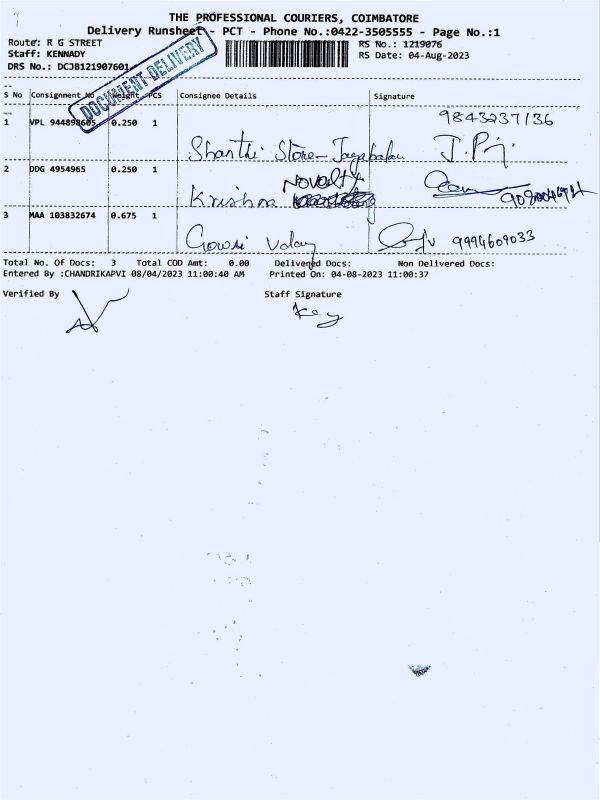 THE PROFESSIONAL COURIERS, COIMBATORE
Delivery Runsheet - PCT - Phone No.:0422-3505555 - Page No.:1
Route: R G STREET
RS No.: 1219076
Staff: KENNADY
RS Date: 04-Aug-2023
DRS No.: DCJB121907601
DOCUMENT DELIVERY
S No Consignment No Weight PCS Consignee Details Signature
1 VPL 944898605 0.250 1 Shanthi Store- 9843237136
J. Pij.
2 DDG 4954965 0.250 1 Krishna Novalty
3 MAA 103832674 0.675 1 Gowri Uday 9994609033
Total No. Of Docs: 3 Total COD Amt: 0.00 Delivered Docs: Non Delivered Docs:
Entered By :CHANDRIKAPVI 08/04/2023 11:00:40 AM Printed On: 04-08-2023 11:00:37
Verified By Staff Signature
Key